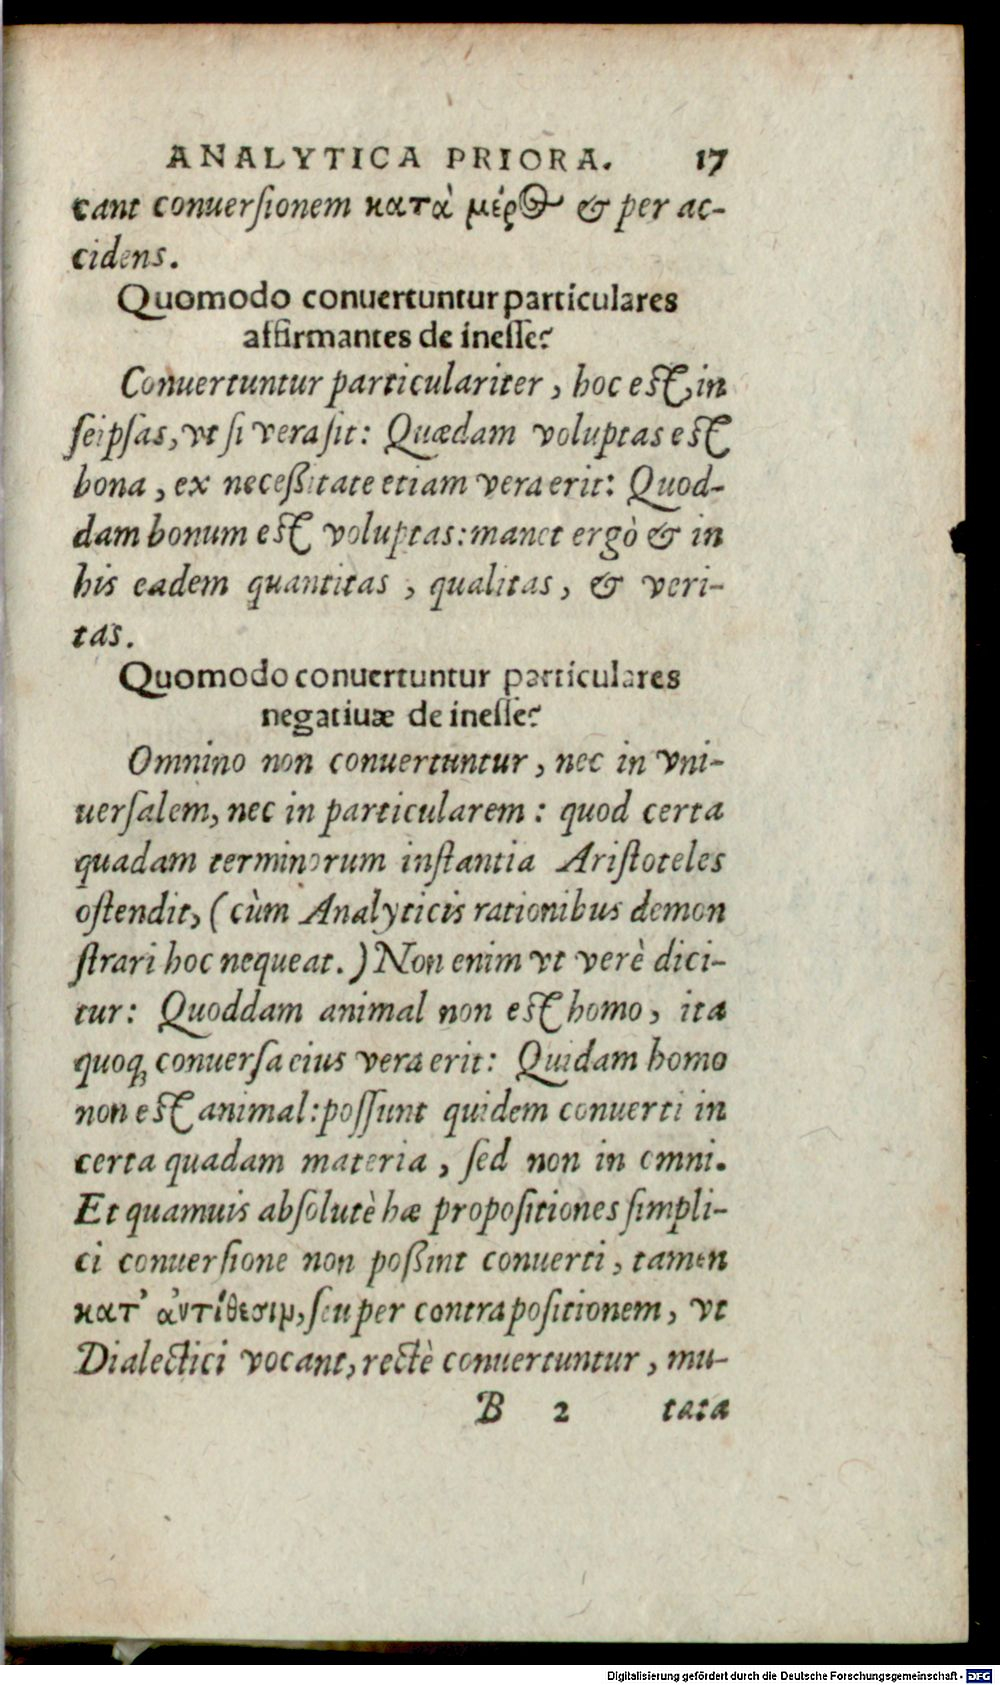 ANALYTICA PRIORA. 17
cant conuerſionem κατὰ μέρος & per ac-
cidens.
Quomodo conuertuntur particulares
affirmantes de ineſſe?
Conuertuntur particulariter, hoc eſt, in
ſeipſas, vt ſi vera ſit: Quædam voluptas eſt
bona, ex neceßitate etiam vera erit: Quod-
dam bonum eſt voluptas: manet ergò & in
his eadem quantitas, qualitas, & veri-
tas.
Quomodo conuertuntur particulares
negatiuæ de ineſſe?
Omnino non conuertuntur, nec in vni-
uerſalem, nec in particularem: quod certa
quadam terminorum inſtantia Ariſtoteles
oſtendit, (cùm Analyticis rationibus demon
ſtrari hoc nequeat.) Non enim vt verè dici-
tur: Quoddam animal non eſt homo, ita
quoq; conuerſa eius vera erit: Quidam homo
non eſt animal: poſſunt quidem conuerti in
certa quadam materia, ſed non in omni.
Et quamuis abſolutè hæ propoſitiones ſimpli-
ci conuerſione non poßint conuerti, tamen
κατ' ἀντίθεσιμ, ſeu per contrapoſitionem, vt
Dialectici vocant, rectè conuertuntur, mu-
B 2 tata
Digitalisierung gefördert durch die Deutsche Forschungsgemeinschaft - DFG